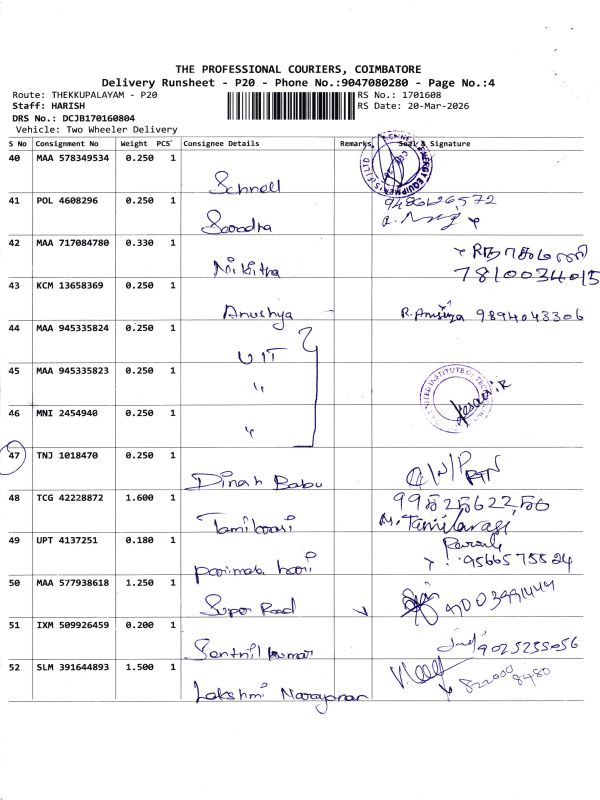 THE PROFESSIONAL COURIERS, COIMBATORE
Delivery Runsheet - P20 - Phone No.:9047080280 - Page No.:4
Route: THEKKUPALAYAM - P20
RS No.: 1701608
Staff: HARISH
RS Date: 20-Mar-2026
DRS No.: DCJB170160804
Vehicle: Two Wheeler Delivery
S No Consignment No Weight PCS Consignee Details Remarks Seal & Signature
40 MAA 578349534 0.250 1 Schnell
41 POL 4608296 0.250 1 Saradha
42 MAA 717084780 0.330 1 Nikitha 7810034015
43 KCM 13658369 0.250 1 Anuchya 9894043306
44 MAA 945335824 0.250 1 UIT
45 MAA 945335823 0.250 1 "
46 MNI 2454940 0.250 1 "
47 TNJ 1018470 0.250 1 Dinah Babu
48 TCG 42228872 1.600 1 M. Tamilarasi
49 UPT 4137251 0.180 1 hari 9566575524
50 MAA 577938618 1.250 1 Super Road
51 IXM 509926459 0.200 1 Senthil kumar 9025255056
52 SLM 391644893 1.500 1 Lakshmi Narayanan